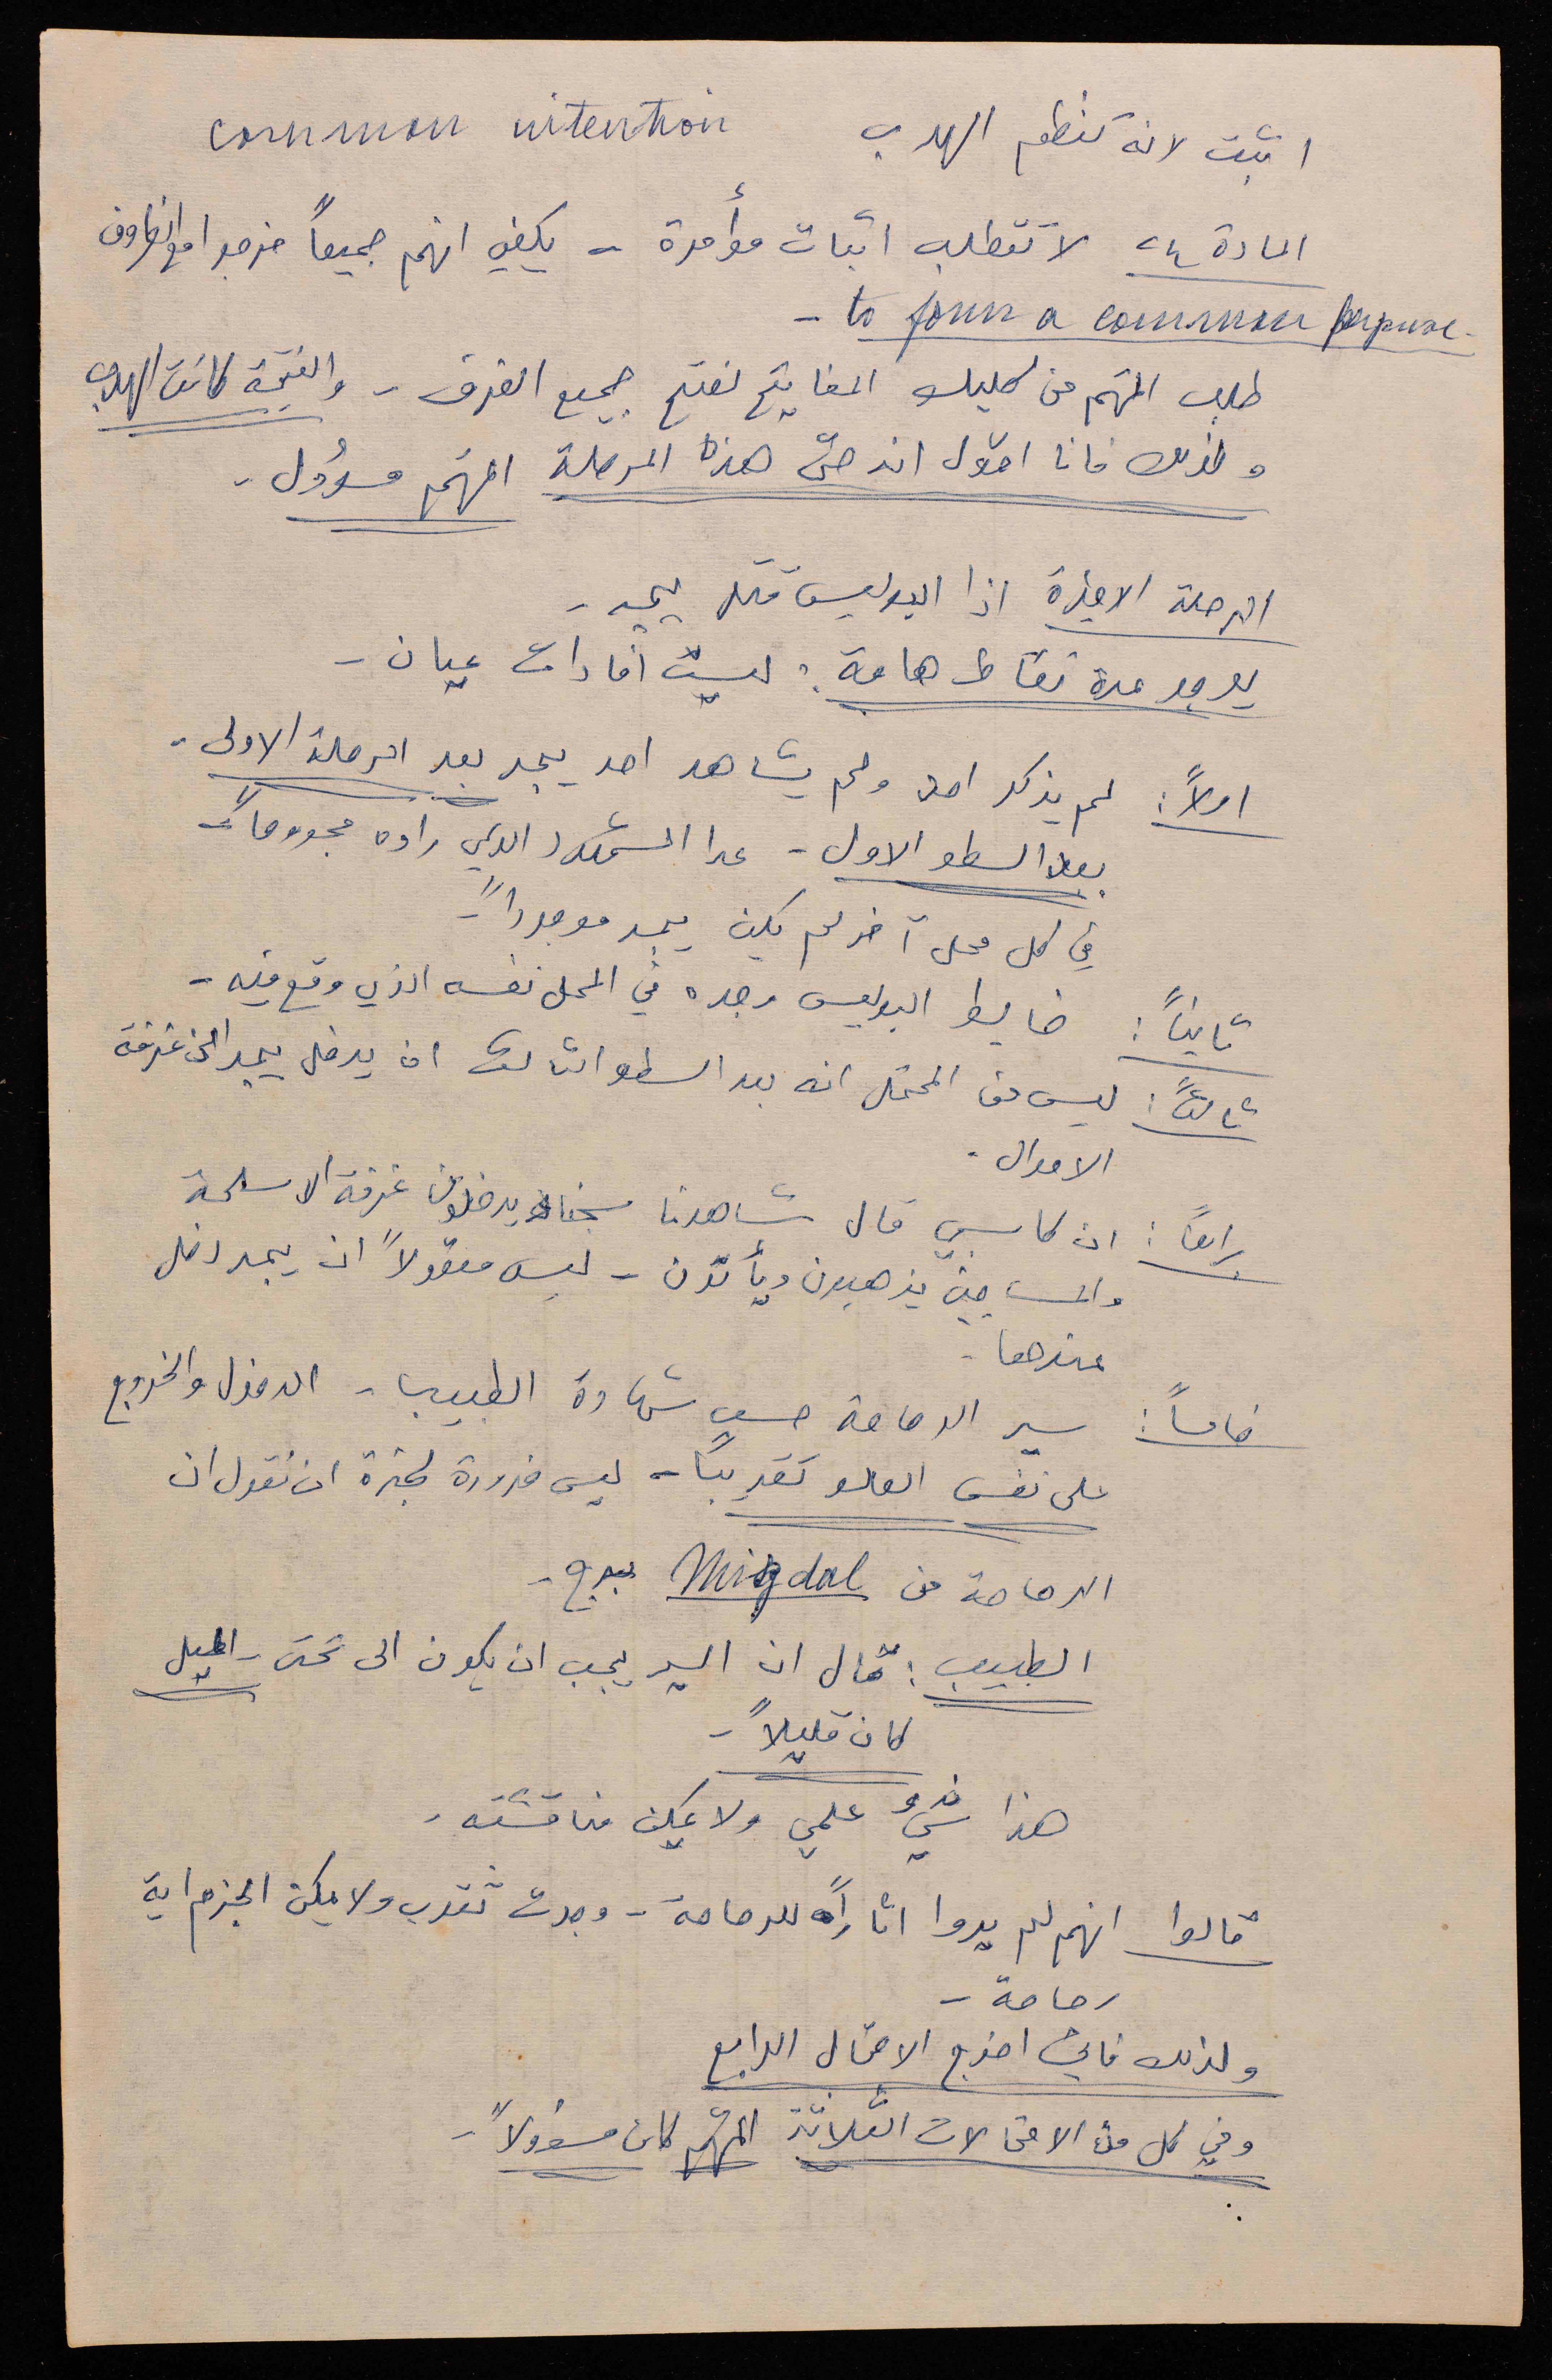 اثبت لانه كنظم الهرب common intention
المادة ٢٤ لا تتطلب اثبات مؤأمرة - يكفي انهم جميعاً خرجوا مع الظروف
to form a common purpose -
طلب المتهم من كليك المفاتيح لفتح جميع الغرف - والنتيجة كانت الهرب
ولذلك فانا اقول انه حتى هذه المرحلة المتهم مسؤول -
المرحلة الاخيرة اذا البوليس قتل يحيد -
يوجد عدة نقاط هامة: ليست افادات عيان -
اولاً: لم يذكر احد ولم يشاهد احد يحيد بعد المرحلة الاولى -
بعد السطو الاول - عدا المشتكى الذي رآوه مجروحاً -
في كل محل آخر لم يكن يحيد موجوداً -
ثانياً: ضابط البوليس وجده في المحل نفسه الذي وقع فيه -
ثالثاً: ليس من المحتمل انه بعد السطو الثالث ان يدخل يحيد الى غرفة
الاموال -
رابعاً: ان كاسبي قال شاهدنا سجناء يدخلون غرفة الاسلحة
والمساجين يذهبون ويأتون - ليس معقولاً ان يحيد دخل
عندها -
خامساً: سير الرصاصة حسب شهادة الطبيب - الدخول والخروج
على نفس العلو تقريباً - ليس ضرورة لخبرة ان نقول ان
الرصاصة من Migdal برج -
الطبيب: قال ان السير يجب ان يكون الى تحت - الميل
كان قليلاً -
هذا شيء علمي ولا يمكن مناقشته -
قالوا انهم لم يروا اثاراً للرصاصة - وجدت ثقوب ولا يمكن الجزم اية
رصاصة -
ولذلك فاني اخرج الاحتمال الرابع
وفي كل من الاحتمالات الثلاثة المتهم كان مسؤولاً -